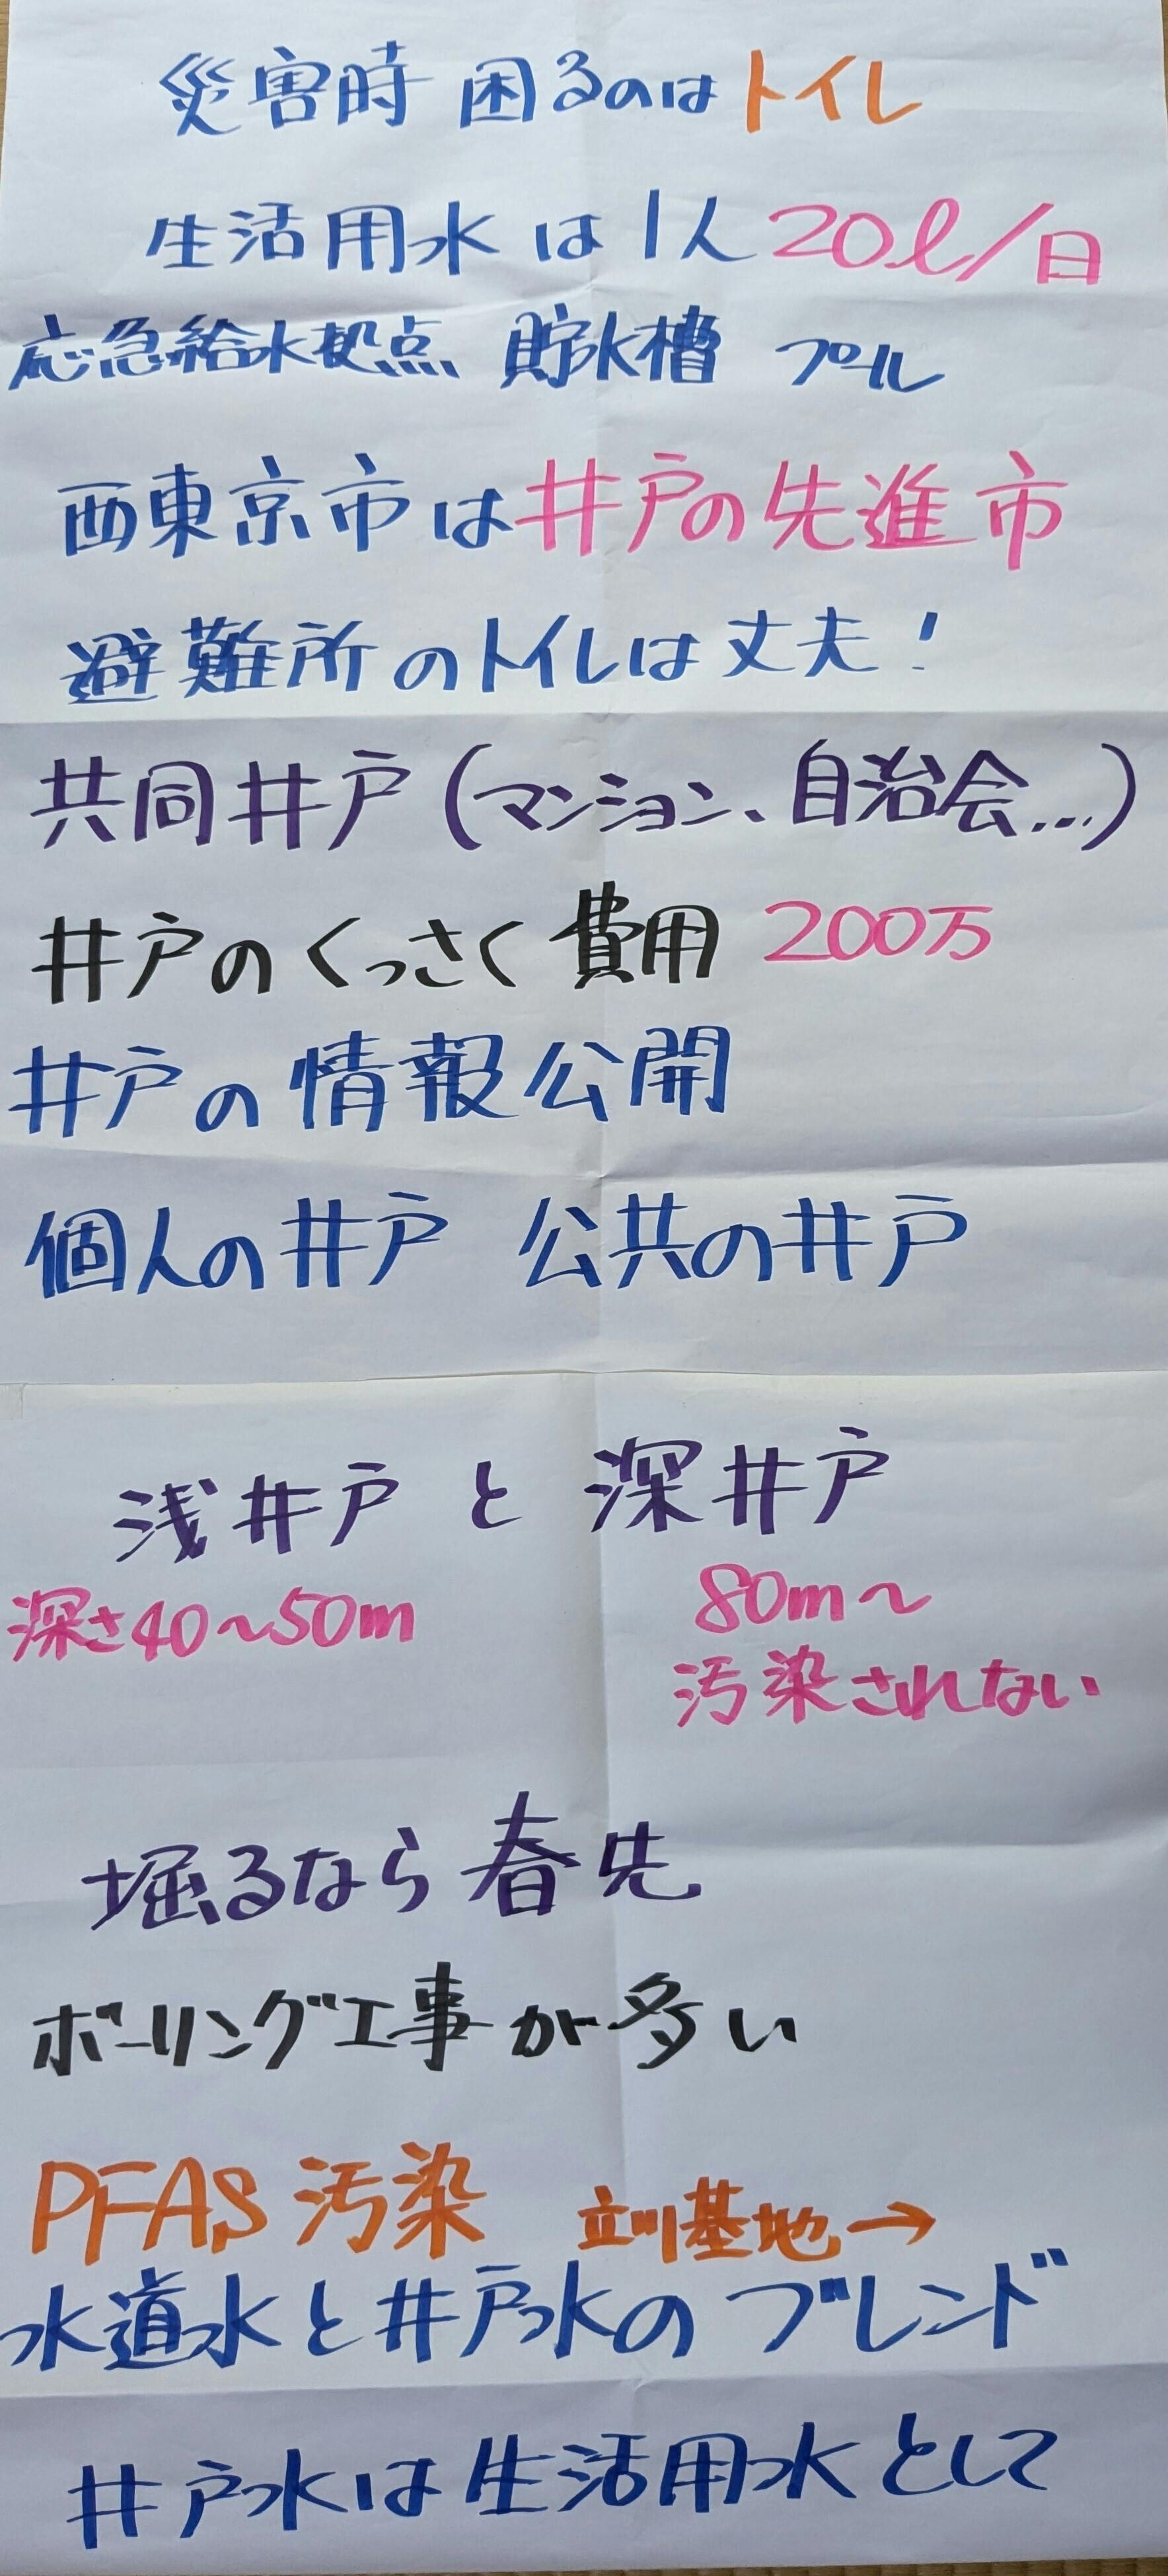 災害時 困るのはトイレ
生活用水は1人20ℓ/日
応急給水拠点 貯水槽 プール
西東京市は井戸の先進市
避難所のトイレは丈夫!
共同井戸(マンション、自治会…)
井戸のくっさく費用 200万
井戸の情報公開
個人の井戸 公共の井戸
浅井戸と深井戸
深さ40~50m 80m~
汚染されない
堀るなら春先
ボーリング工事が多い
PFAS汚染 立川基地→
水道水と井戸水のブレンド
井戸水は生活用水として